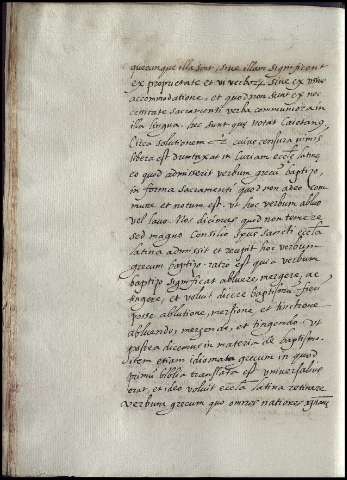 quecunque illa sint, siue illam significent
ex proprietate et vi verborum, siue ex usus
accommodatione, et quod non sint ex ne-
cessitate sacramenti verba communiora in
illa lingua. hec sunt que notat Caietanus
Circa solutionem cuius censura nimis
libera est duntaxat in Curiam eccle. latine
eo quod admiserit verbum grecum baptizo,
in forma sacramenti quod non adeo com-
mune et notum est. vt hoc verbum abluo
vel lauo. Nos dicimus quod non temere
sed magno Consilio spus sancti ecclia
latina admissit et recepit hoc verbum
grecum baptizo. ratio est quia verbum
baptizo significat abluere, mergere, ac
tingere, et voluit dicere baptismum fieri
posse ablutione, mersione, et tinctione
abluendo, mergendo, et tingendo: vt
postea dicemus in materia de baptismo.
Item etiam idiomata grecum in quod
primum biblia translata est vniuersalius
erat, et ideo voluit ecclia latina retinere
verbum grecum quo omnes nationes xpiane